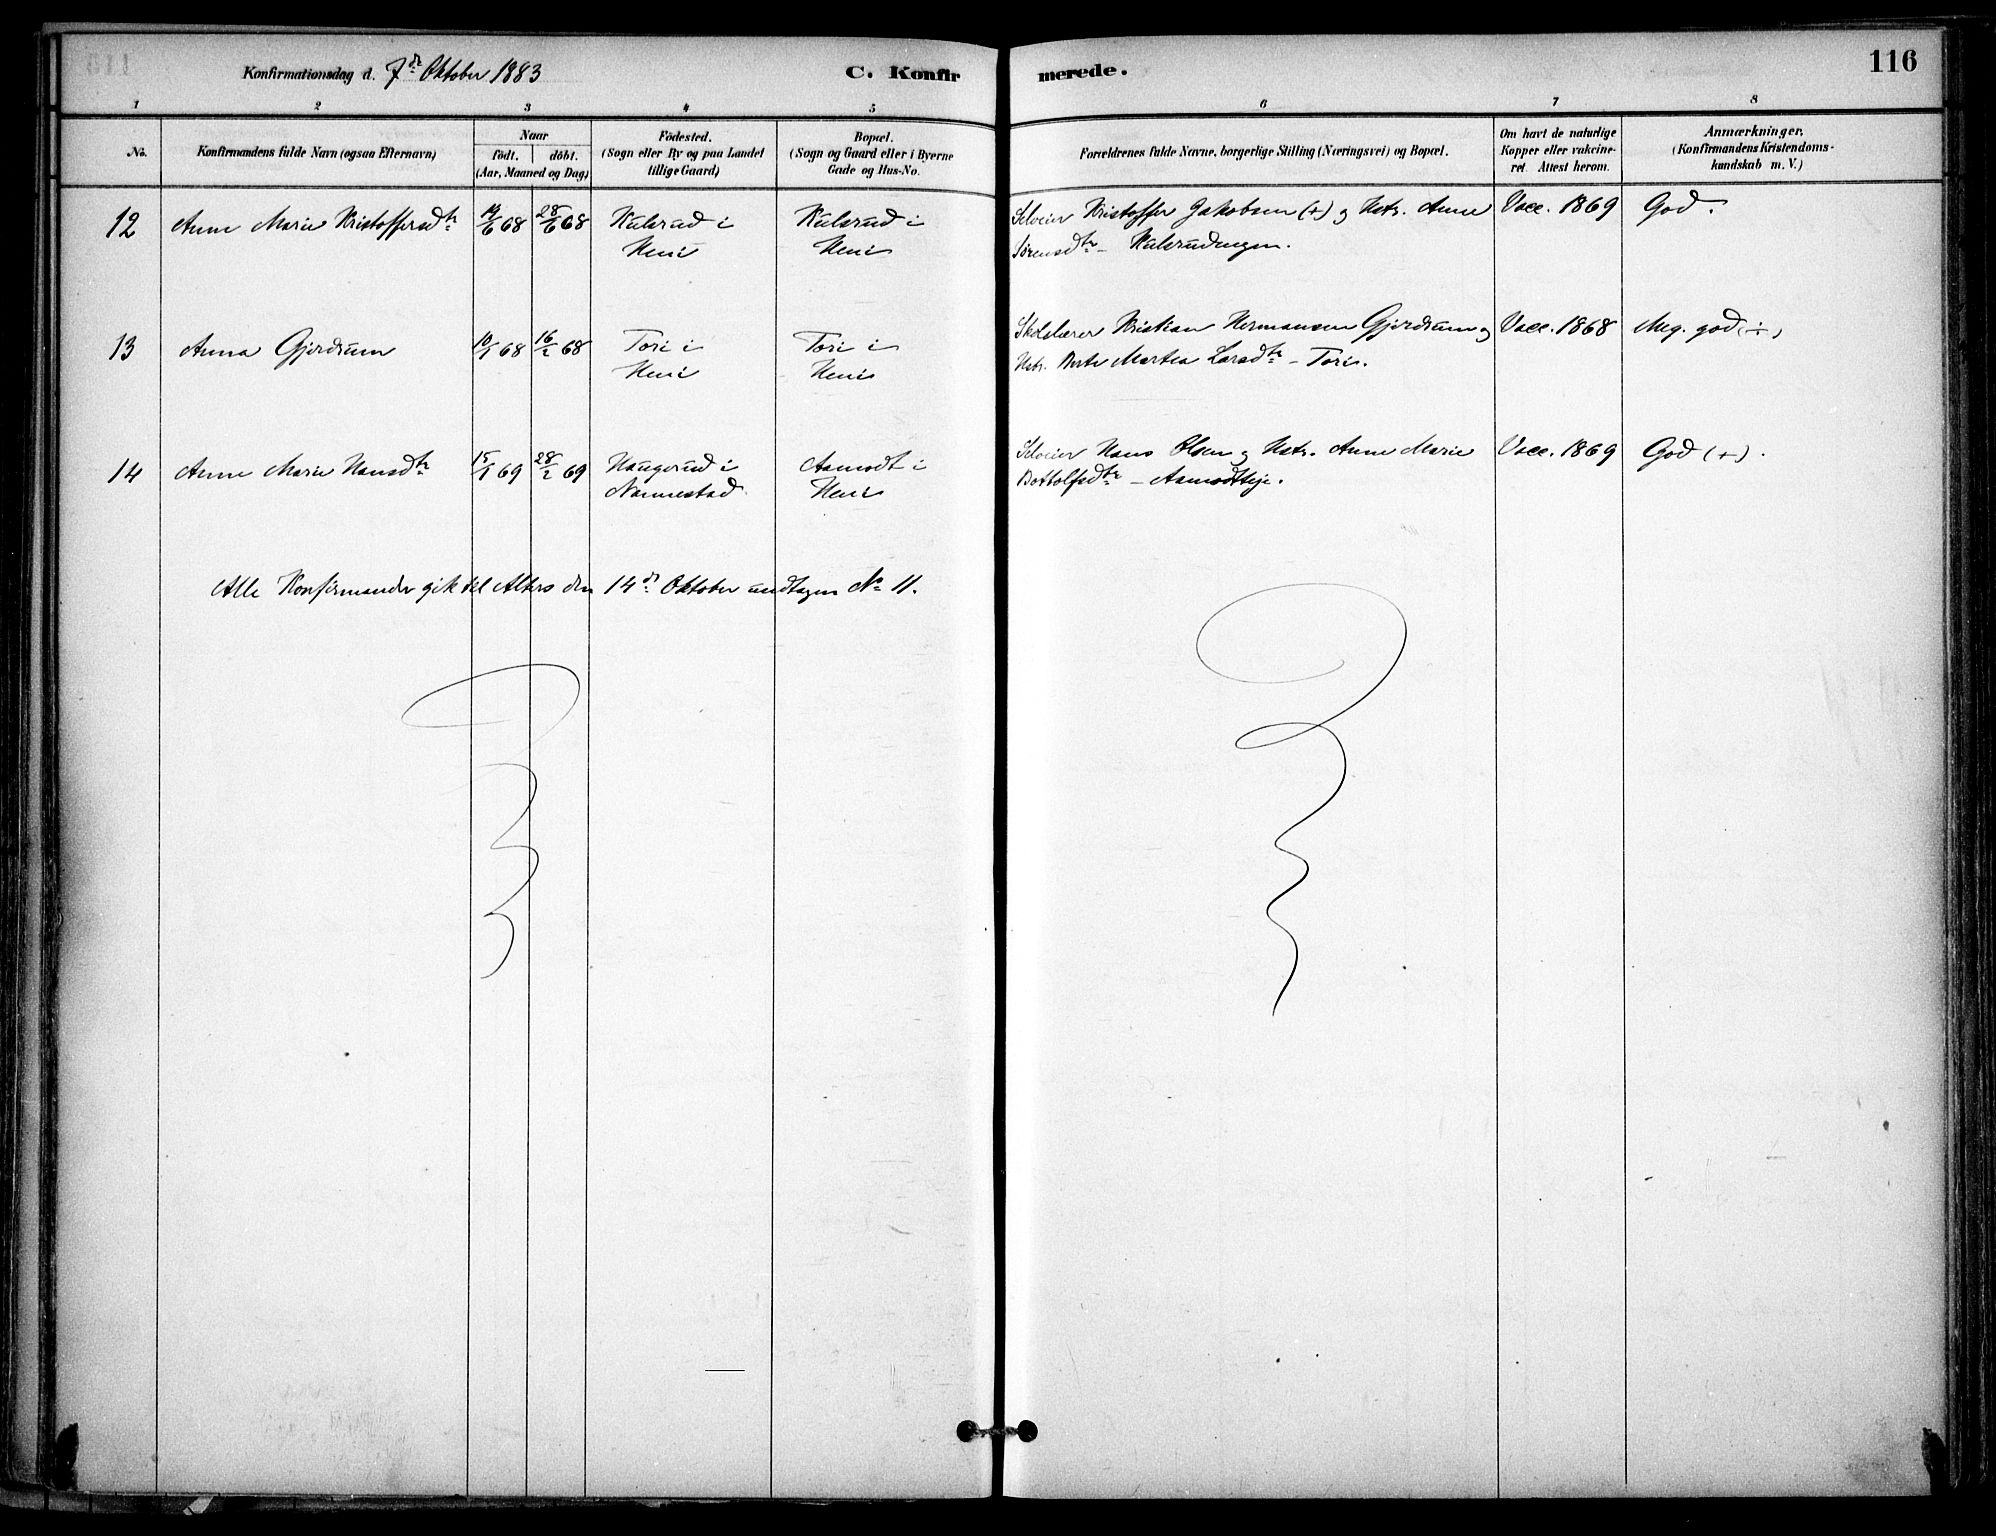 Konfirmationsdag d. 7de Oktober 1883
C. Konfir
merede.
116
1 2 3 4 5 6 7 8
No.
Konfirmandens fulde Navn (ogsaa Efternavn)
Naar
födt. döbt.
(Aar, Maaned og Dag)
Födested.
(Sogn eller By og paa Landet
tillige Gaard)
Bopæl.
(Sogn og Gaard eller i Byerne
Gade og Hus-No.
Forældrenes fulde Navne, borgerlige Stilling (Næringsvei) og Bopæl.
Om havt de naturlige
Kopper eller vakcine-
ret. Attest herom.
Anmærkninger.
(Konfirmandens Kristendoms-
kundskab m. V.)
12 Anne Marie Kristoffersdtr 14/6 68 28/6 68 Kulsrud i Kulsrud i Selveier Kristoffer Jakobsen (+) og Hstr. Anne Vacc. 1869 God.
Heni Heni Sørensdtr – Kulsrudengen.
13 Anna Gjerdrum 10/1 68 16/2 68 Tori i Tori i Skolelærer Kristian Hermansen Gjerdrum og Vacc. 1868 Meg. god (÷)
Heni Heni Hstr. Berte Martea Larsdtr – Tori.
14 Anne Marie Hansdtr 15/1 69 28/2 69 Haugerud i Aamodt i Selveier Hans Olsen og Hstr. Anne Marie Vacc. 1869 God (+).
Nannestad Heni Bottolfsdtr – Aamodteje.
Alle Konfirmander gik til Alters den 14de Oktober undtagen No 11.